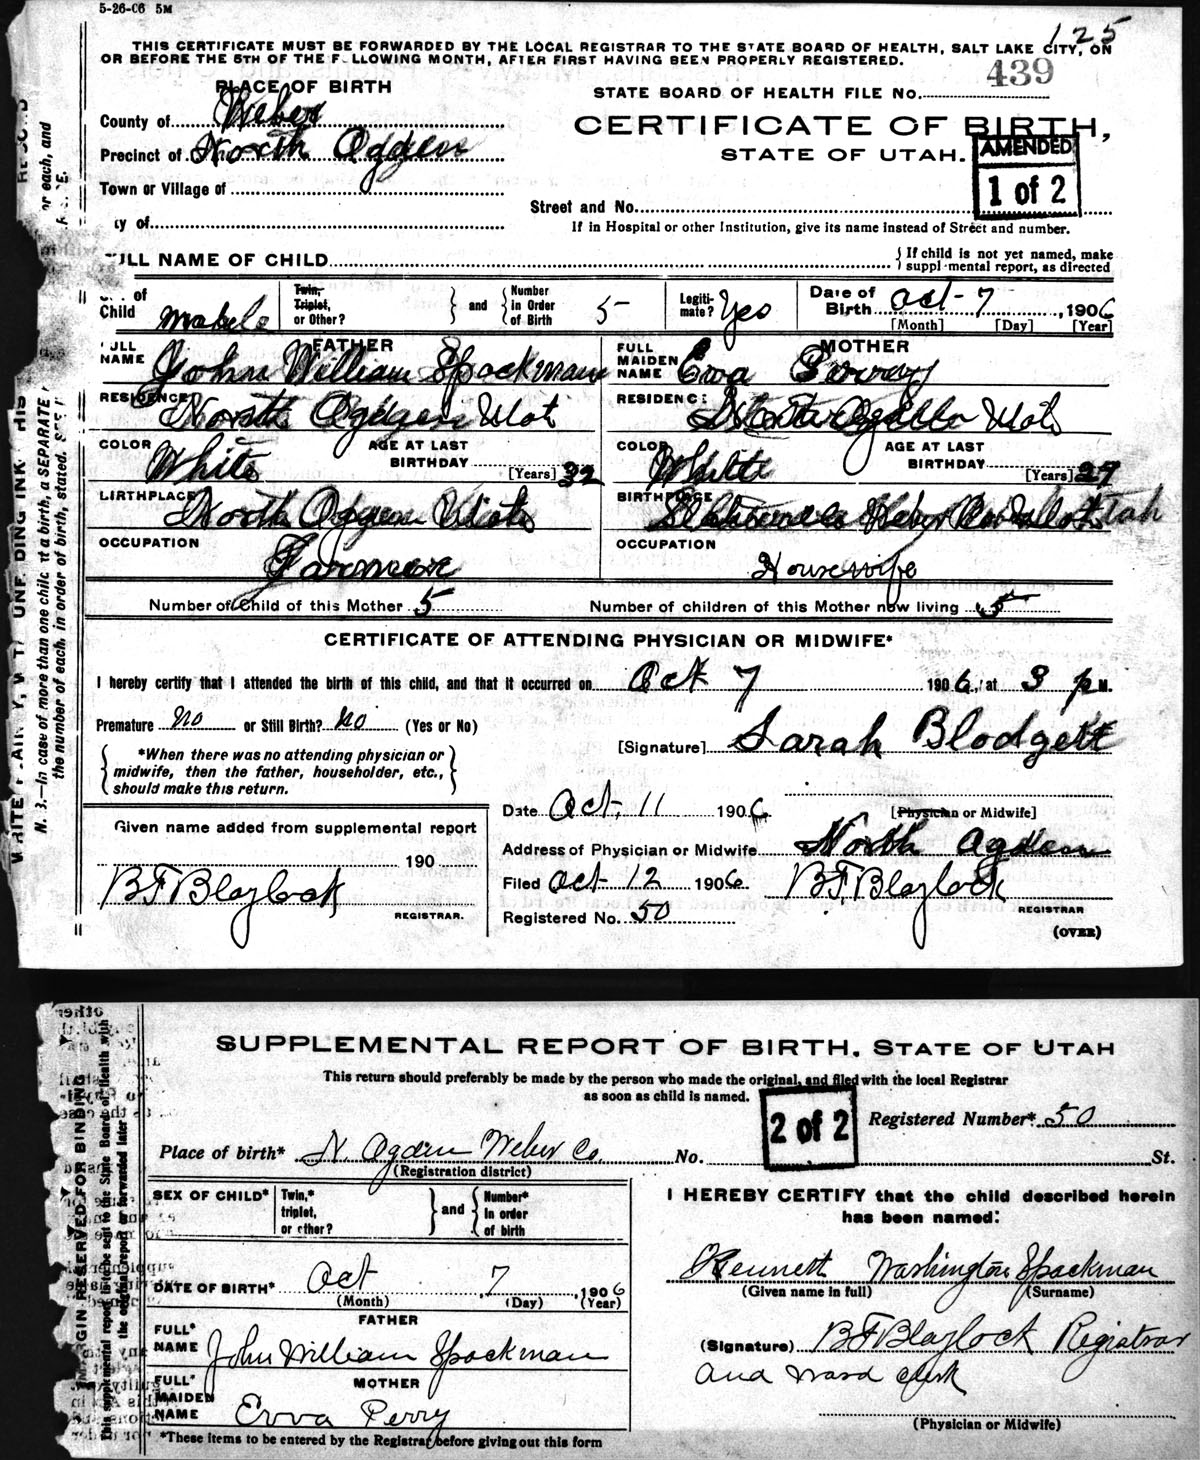 5-26-06 5M
125
THIS CERTIFICATE MUST BE FORWARDED BY THE LOCAL REGISTRAR TO THE STATE BOARD OF HEALTH, SALT LAKE CITY, ON
OR BEFORE THE 5TH OF THE F LLOWING MONTH, AFTER FIRST HAVING BEEN PROPERLY REGISTERED.
439
PLACE OF BIRTH
STATE BOARD OF HEALTH FILE No.
County of Weber
CERTIFICATE OF BIRTH,
Precinct of North Ogden
STATE OF UTAH.
AMENDED
1 of 2
Town or Village of
Street and No.
ty of
If in Hospital or other Institution, give its name instead of Street and number.
ULL NAME OF CHILD
If child is not yet named, make
suppl mental report, as directed
of
Child Mabele
Twin,
Triplet,
or Other?
and
Number
in Order
of Birth 5
Legiti-
mate? Yes
Date of
Birth Oct-7, 1906
[Month] [Day] [Year]
FATHER
MOTHER
ULL
NAME John William Spackman
FULL
MAIDEN
NAME Eva Perry
RESIDENCE North Ogden Utah
RESIDENC: Utah
COLOR White
AGE AT LAST
BIRTHDAY [Years] 32
COLOR White
AGE AT LAST
BIRTHDAY [Years] 27
BIRTHPLACE North Ogden Utah
BIRTHPLACE
OCCUPATION Farmer
OCCUPATION Housewife
Number of Child of this Mother 5
Number of children of this Mother now living 5
CERTIFICATE OF ATTENDING PHYSICIAN OR MIDWIFE*
I hereby certify that I attended the birth of this child, and that it occurred on Oct 7 1906, at 3 P M.
Premature No or Still Birth? No (Yes or No)
[Signature] Sarah Blodgett
*When there was no attending physician or
midwife, then the father, householder, etc.,
should make this return.
Date Oct, 11 1906
[Physician or Midwife]
Given name added from supplemental report
190
Address of Physician or Midwife North Ogden
BF Blaylock
REGISTRAR.
Filed Oct 12 1906
BF. Blaylock
REGISTRAR
Registered No. 50
(OVER)
N. B.—In case of more than one child at a birth, a SEPARATE
the number of each, in order of birth, stated.
SUPPLEMENTAL REPORT OF BIRTH, STATE OF UTAH
This return should preferably be made by the person who made the original, and filed with the local Registrar
as soon as child is named.
2 of 2
Registered Number* 50
Place of birth* N. Ogden Weber Co. No. St.
(Registration district)
SEX OF CHILD*
Twin,*
triplet,
or other?
and
Number*
in order
of birth
I HEREBY CERTIFY that the child described herein
has been named:
Kennett Washington Spackman
(Given name in full) (Surname)
DATE OF BIRTH* Oct, 7, 1906
(Month) (Day) (Year)
FATHER
FULL*
NAME John William Spackman
(Signature) BF Blaylock Registrar
and ward clerk
MOTHER
FULL*
MAIDEN
NAME Evva Perry
(Physician or Midwife)
*These items to be entered by the Registrar before giving out this form
MARGIN RESERVED FOR BINDING
This supplemental report is to be sent to the State Board of Health with
the original report or forwarded later